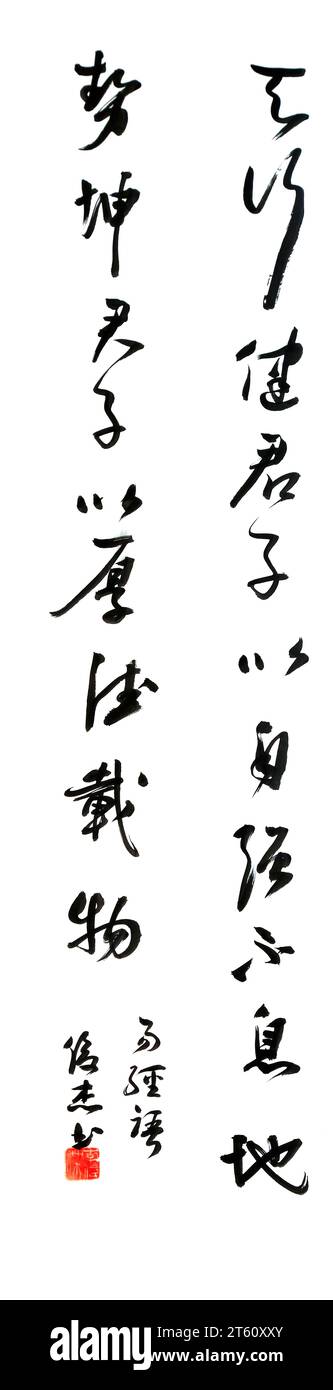 天行健君子以自强不息地
势坤君子以厚德載物
易經語
俊杰书
alamy
Image ID: 2T60XXY
www.alamy.com